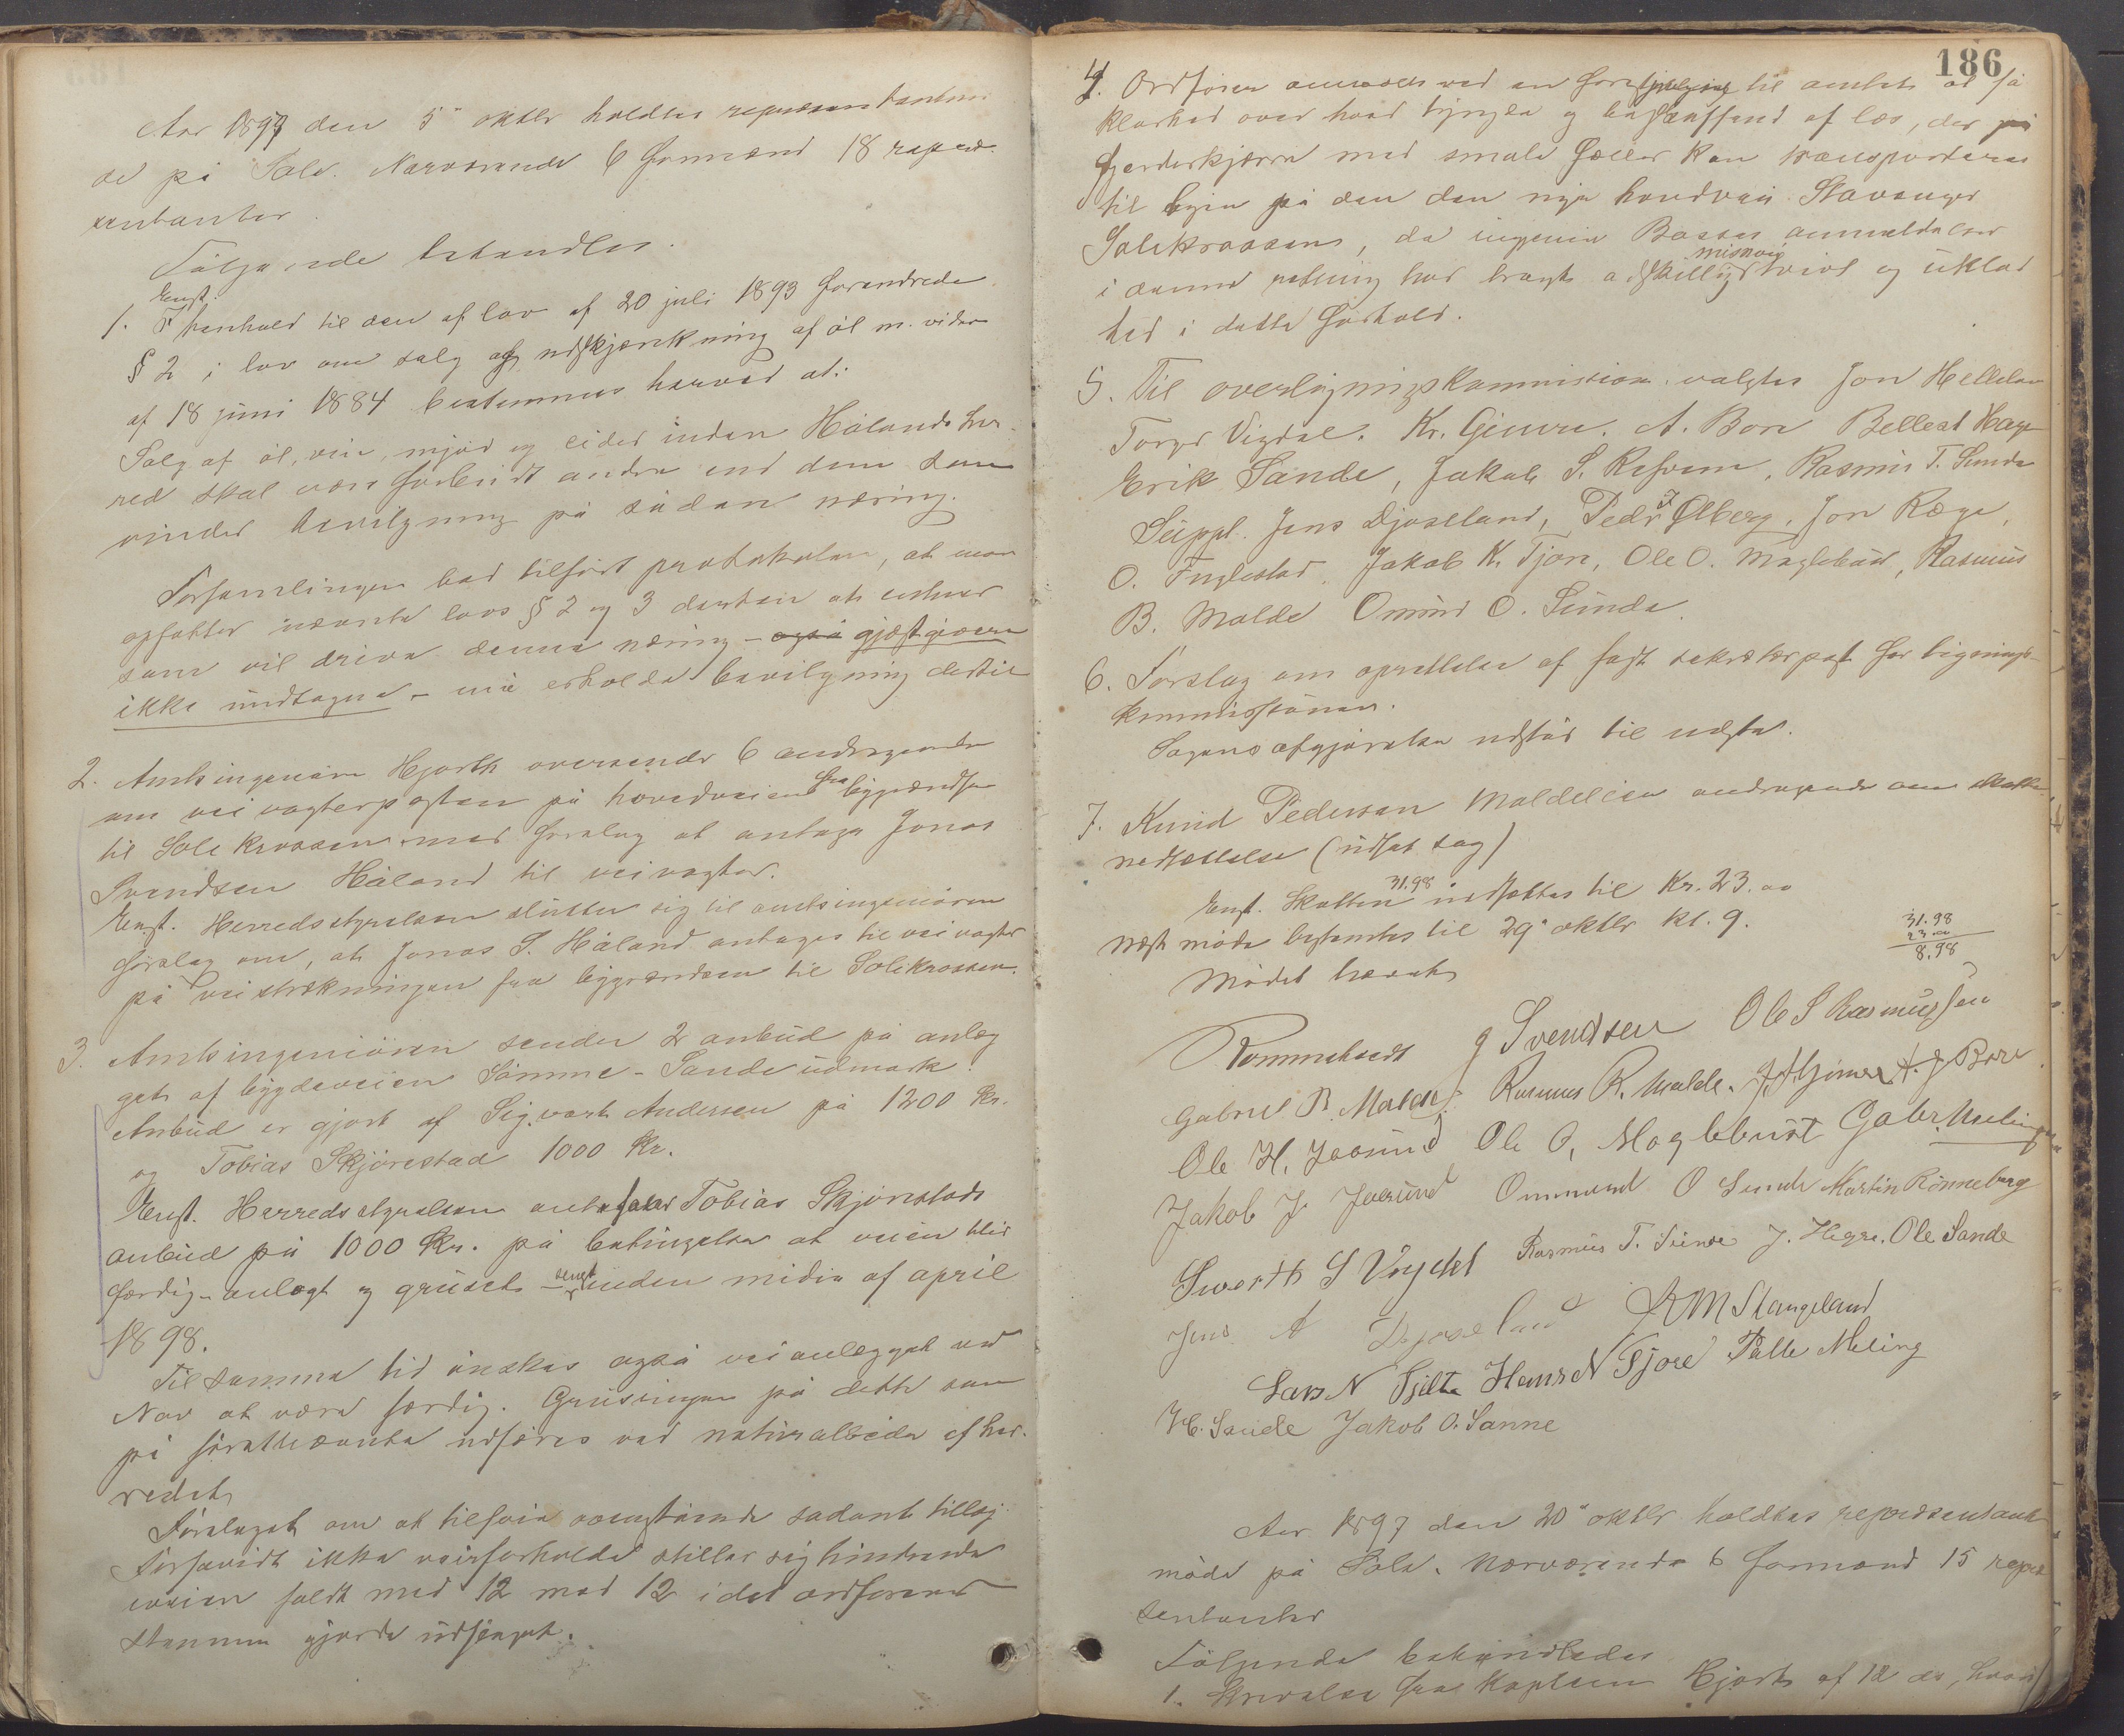 Aar 1897 den 5" oktbr holdtes repræsentantmø
de på Sole. Nærværende 6 formænd 18 repræ-
sentanter.
Følgende behandles.
Enst.
1. I henhold til den af lov af 20 juli 1893 forandrede
§ 2 i lov om salg og udskjænkning af öl m. videre
af 18 juni 1884 bestemmes herved at:
Salg af öl, vin, mjød og cider inden Hålands her-
red skal være forbudt andre end dem som
vinder bevilgning på sådan næring.
Forsamlingen bad tilført protokolen, at man
opfatter nævnte lovs § 2 og 3 derhen at enhver
som vil drive denne næring – også gjæstgivere
ikke undtagne – må erholde bevilgning dertil
2. Amtsingeniør Hjorth oversender 6 andragender
om veivogterposten på hovedveien fra bygrændsen
til Sole krossen med forslag at antage Jonas
Svendsen Håland til veivogter.
Enst. Herredsstyrelsen slutter sig til amtsingeniøren
forslag om, at Jonas S. Håland antages til veivogter
på veistrækningen fra bygrændsen til Solekrossen.
3. Amtsingeniören sender 2 anbud på anlæg
get af bygdeveien Sömme – Sande udmark.
Anbud er gjort af Sigvart Andersen på 1200 Kr.
og Tobias Skjørestad 1000 Kr.
Enst. Herredsstyrelsen anbefaler Tobias Skjørestads
anbud på 1000 Kr. på betingelse at veien blir
færdig anlagt og gruset senest inden midten af april
1898.
Til samme tid ønskes også veianlægget ved
Nav at være færdig. Grusingen på dette som
på førstnævnte udføres ved naturalarbeide af her-
redet.
Forslaget om at tilføie ovenstående sådant tillæg
Forsavidt ikke veirforholde stiller sig hindrende
iveien faldt med 12 mod 12 idet ordførerens
stemme gjorde udslaget.
186
4. Ordføren anmodes ved en forespørgsel til amtet at få
klarhed over hvad tyngde og beskaffenhed af læs, der på
fjærderkjærre med smale fælger kan transporteres
til byen på den den nye hovedvei Stavanger
Solekrossen, da ingeniør Basses anmeldelser
misnøie
i denne retning har bragt adskillig tvivl og uklar
hed i dette forhold.
5. Til overligningskommission valgtes Jon Helleland
Torger Vigdal. Kr. Gimre. A. Bore Bellest Haga
Erik Sande, Jakob S. Refsnes, Rasmus T. Sunde
Suppl. Jens Djoseland, Peder J Ølberg, Jon Ræge,
O. Fuglestad, Jakob K. Tjore, Ole O. Maglebust, Rasmus
B. Malde Omund O. Sunde.
6. Forslag om oprettelse af fast sekretærpost for lignings-
kommissionen.
Sagens afgjørelse udstår til næste.
7. Knud Pedersen Maldelien andragende om skatte-
nedsættelse (udsat sag)
Enst. Skatten 31.98 nedsættes til Kr. 23.00
Næste møde bestemtes til 29" oktbr kl. 9.
31.98
23.00
8,98
Mødet hævet
Rommetvedt J Svendsen Ole S Rasmussen
Gabriel B. Malde. Rasmus R. Malde. J H Gimre A. J Bore
Ole H. Joasund Ole O, Maglebust Gabr. Meling
Jakob J Joasund Ommund O Sunde Martin Rönneberg
Sivert S Vigdel Rasmus T. Sunde J. Hegre. Ole Sande
Jens A Djoseland R M Stangeland
Lars N Tjelta Hans N Tjore Palle Meling
H. Sande Jakob O. Sanne
Aar 1897 den 20" oktbr. holdtes repræsentant
møde på Sole. Nærværende 6 formænd 15 repræ
sentanter
Følgende behandledes
1. Skrivelse fra kaptein Hjorth af 12 ds, hvori